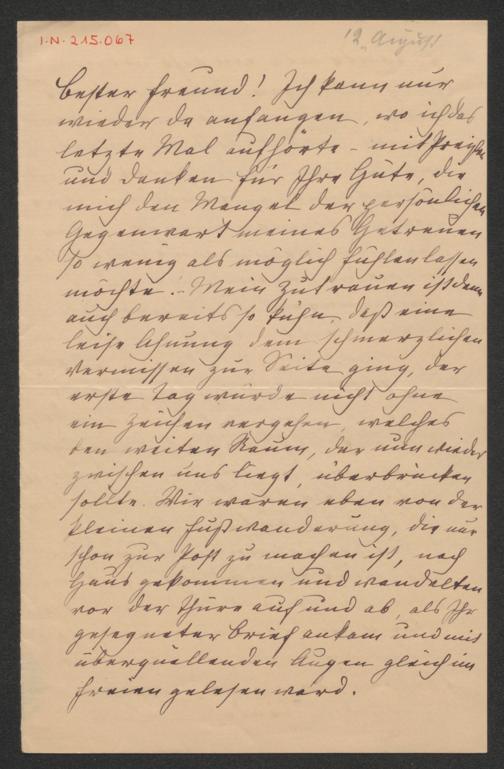 I.N. 215.067
12. August
Bester Freund! Ich kann nur
wieder da anfangen, wo ich das
letzte Mal aufhörte – mit Preisen
und Danken für Ihre Güte, die
mich den Mangel der persönlichen
Gegenwart meines Getreuen
so wenig als möglich fühlen lassen
möchte. – Mein Zutrauen ist denn
auch bereits so kühn, daß eine
leise Ahnung dem schmerzlichen
Vermissen zur Seite ging, der
erste Tag würde nicht ohne
ein Zeichen vergehen, welches
den weiten Raum, der nun wieder
zwischen uns liegt, überbrücken
sollte. Wir waren eben von der
kleinen Fußwanderung, die nur
schon zur Post zu machen ist, nach
Haus gekommen und wandelten
vor der Thüre auf und ab, als Ihr
gesegneter Brief ankam und mit
überquellenden Augen gleich im
Freien gelesen ward.